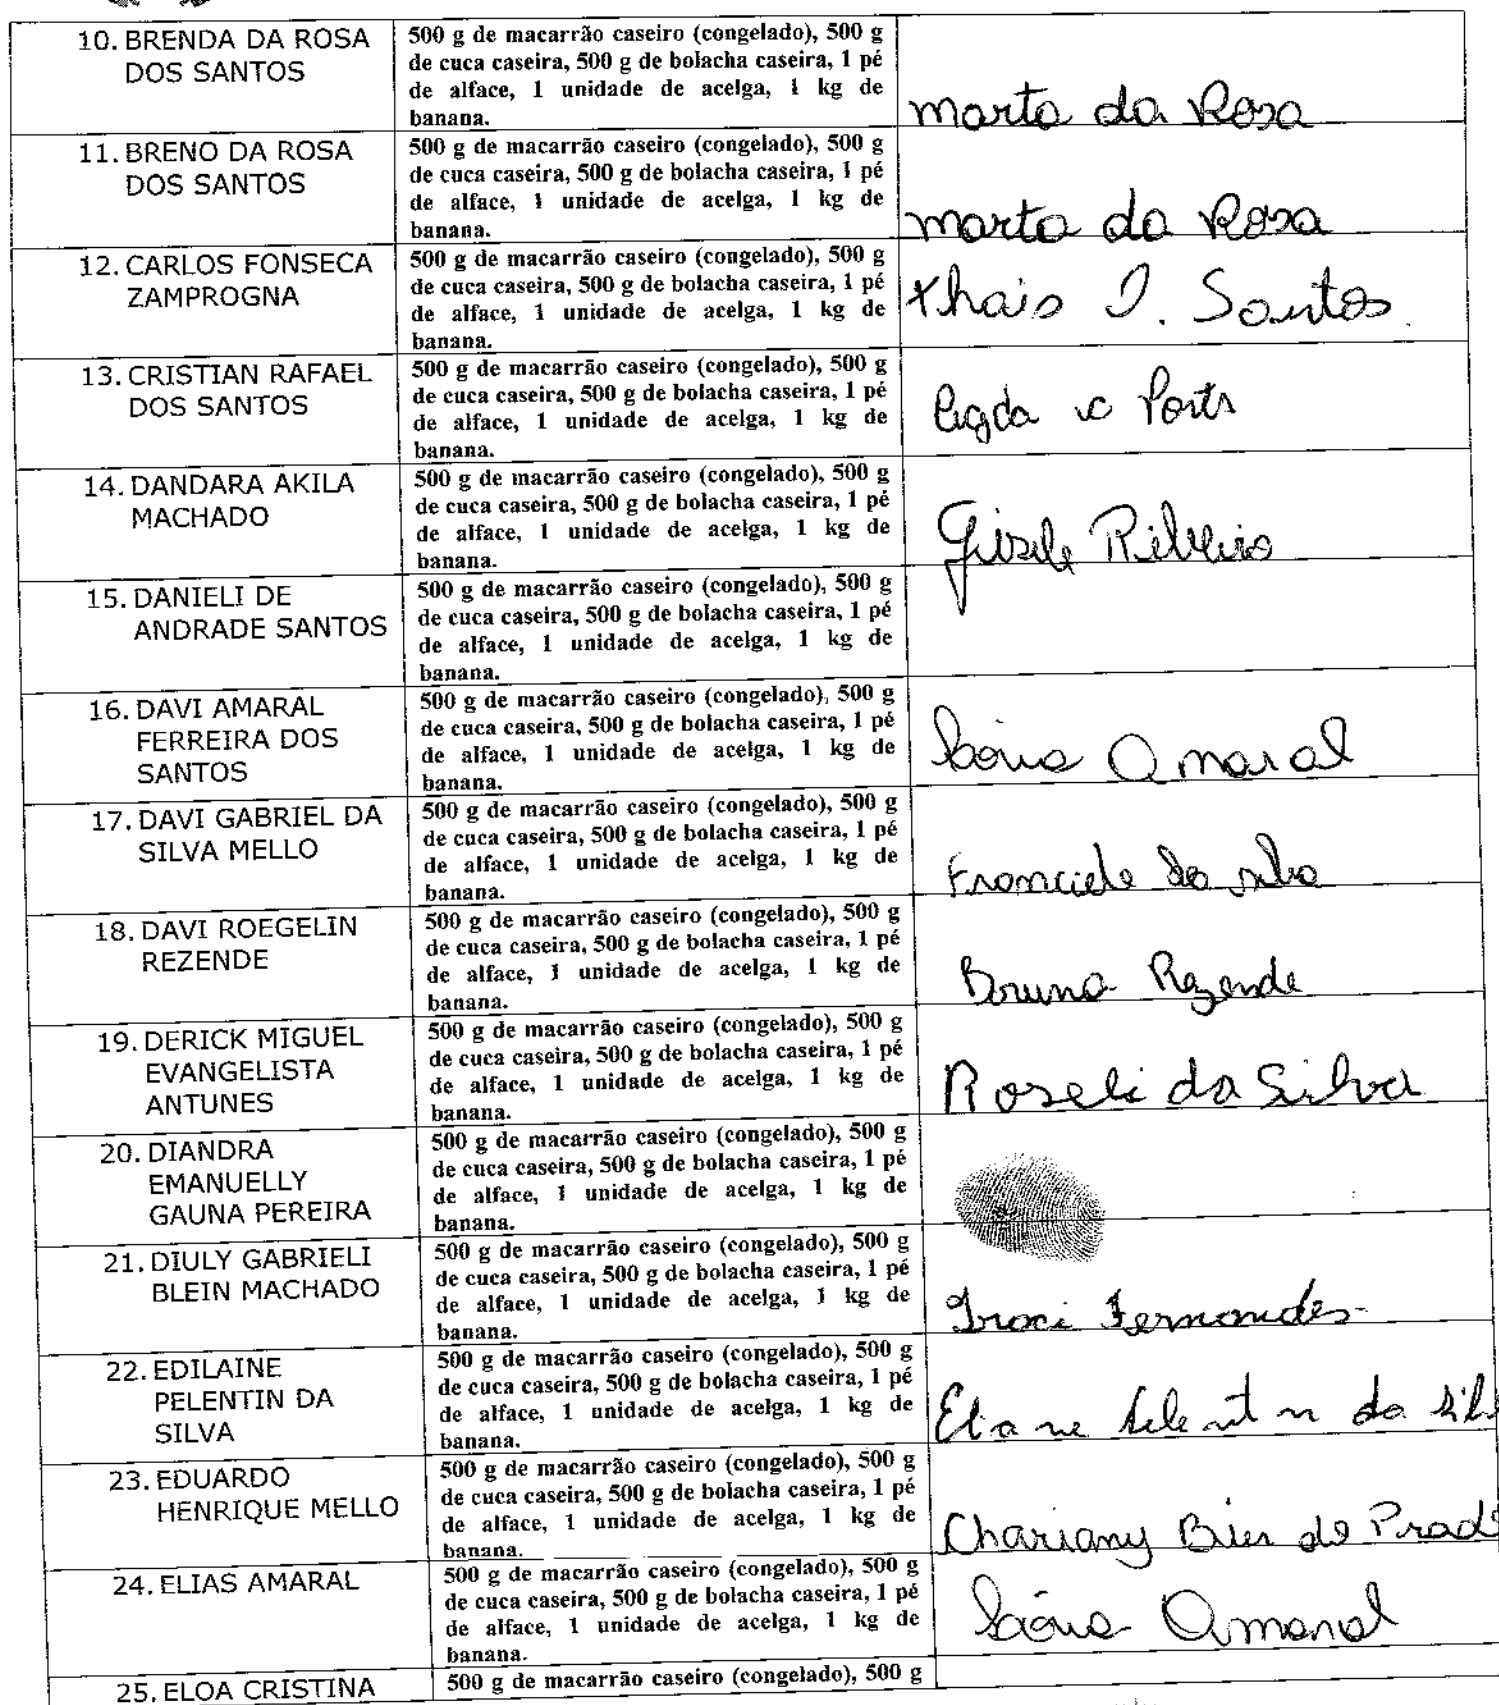 10. BRENDA DA ROSA
DOS SANTOS
500 g de macarrão caseiro (congelado), 500 g
de cuca caseira, 500 g de bolacha caseira, 1 pé
de alface, 1 unidade de acelga, 1 kg de
banana.
marta da Rosa
11. BRENO DA ROSA
DOS SANTOS
500 g de macarrão caseiro (congelado), 500 g
de cuca caseira, 500 g de bolacha caseira, 1 pé
de alface, 1 unidade de acelga, 1 kg de
banana.
marta da Rosa
12. CARLOS FONSECA
ZAMPROGNA
500 g de macarrão caseiro (congelado), 500 g
de cuca caseira, 500 g de bolacha caseira, 1 pé
de alface, 1 unidade de acelga, 1 kg de
banana.
Thais D. Santos.
13. CRISTIAN RAFAEL
DOS SANTOS
500 g de macarrão caseiro (congelado), 500 g
de cuca caseira, 500 g de bolacha caseira, 1 pé
de alface, 1 unidade de acelga, 1 kg de
banana.
14. DANDARA AKILA
MACHADO
500 g de macarrão caseiro (congelado), 500 g
de cuca caseira, 500 g de bolacha caseira, 1 pé
de alface, 1 unidade de acelga, 1 kg de
banana.
Gisele Ribeiro
15. DANIELI DE
ANDRADE SANTOS
500 g de macarrão caseiro (congelado), 500 g
de cuca caseira, 500 g de bolacha caseira, 1 pé
de alface, 1 unidade de acelga, 1 kg de
banana.
16. DAVI AMARAL
FERREIRA DOS
SANTOS
500 g de macarrão caseiro (congelado), 500 g
de cuca caseira, 500 g de bolacha caseira, 1 pé
de alface, 1 unidade de acelga, 1 kg de
banana.
Amaral
17. DAVI GABRIEL DA
SILVA MELLO
500 g de macarrão caseiro (congelado), 500 g
de cuca caseira, 500 g de bolacha caseira, 1 pé
de alface, 1 unidade de acelga, 1 kg de
banana.
Franciele da silva
18. DAVI ROEGELIN
REZENDE
500 g de macarrão caseiro (congelado), 500 g
de cuca caseira, 500 g de bolacha caseira, 1 pé
de alface, 1 unidade de acelga, 1 kg de
banana.
Bruna Rezende
19. DERICK MIGUEL
EVANGELISTA
ANTUNES
500 g de macarrão caseiro (congelado), 500 g
de cuca caseira, 500 g de bolacha caseira, 1 pé
de alface, 1 unidade de acelga, 1 kg de
banana.
Roseli da Silva
20. DIANDRA
EMANUELLY
GAUNA PEREIRA
500 g de macarrão caseiro (congelado), 500 g
de cuca caseira, 500 g de bolacha caseira, 1 pé
de alface, 1 unidade de acelga, 1 kg de
banana.
21. DIULY GABRIELI
BLEIN MACHADO
500 g de macarrão caseiro (congelado), 500 g
de cuca caseira, 500 g de bolacha caseira, 1 pé
de alface, 1 unidade de acelga, 1 kg de
banana.
Iraci Fernandes
22. EDILAINE
PELENTIN DA
SILVA
500 g de macarrão caseiro (congelado), 500 g
de cuca caseira, 500 g de bolacha caseira, 1 pé
de alface, 1 unidade de acelga, 1 kg de
banana.
Eliane Pelentin da Silv
23. EDUARDO
HENRIQUE MELLO
500 g de macarrão caseiro (congelado), 500 g
de cuca caseira, 500 g de bolacha caseira, 1 pé
de alface, 1 unidade de acelga, 1 kg de
banana.
Chariany Bier do Prado
24. ELIAS AMARAL
500 g de macarrão caseiro (congelado), 500 g
de cuca caseira, 500 g de bolacha caseira, 1 pé
de alface, 1 unidade de acelga, 1 kg de
banana.
Amaral
25. ELOA CRISTINA
500 g de macarrão caseiro (congelado), 500 g